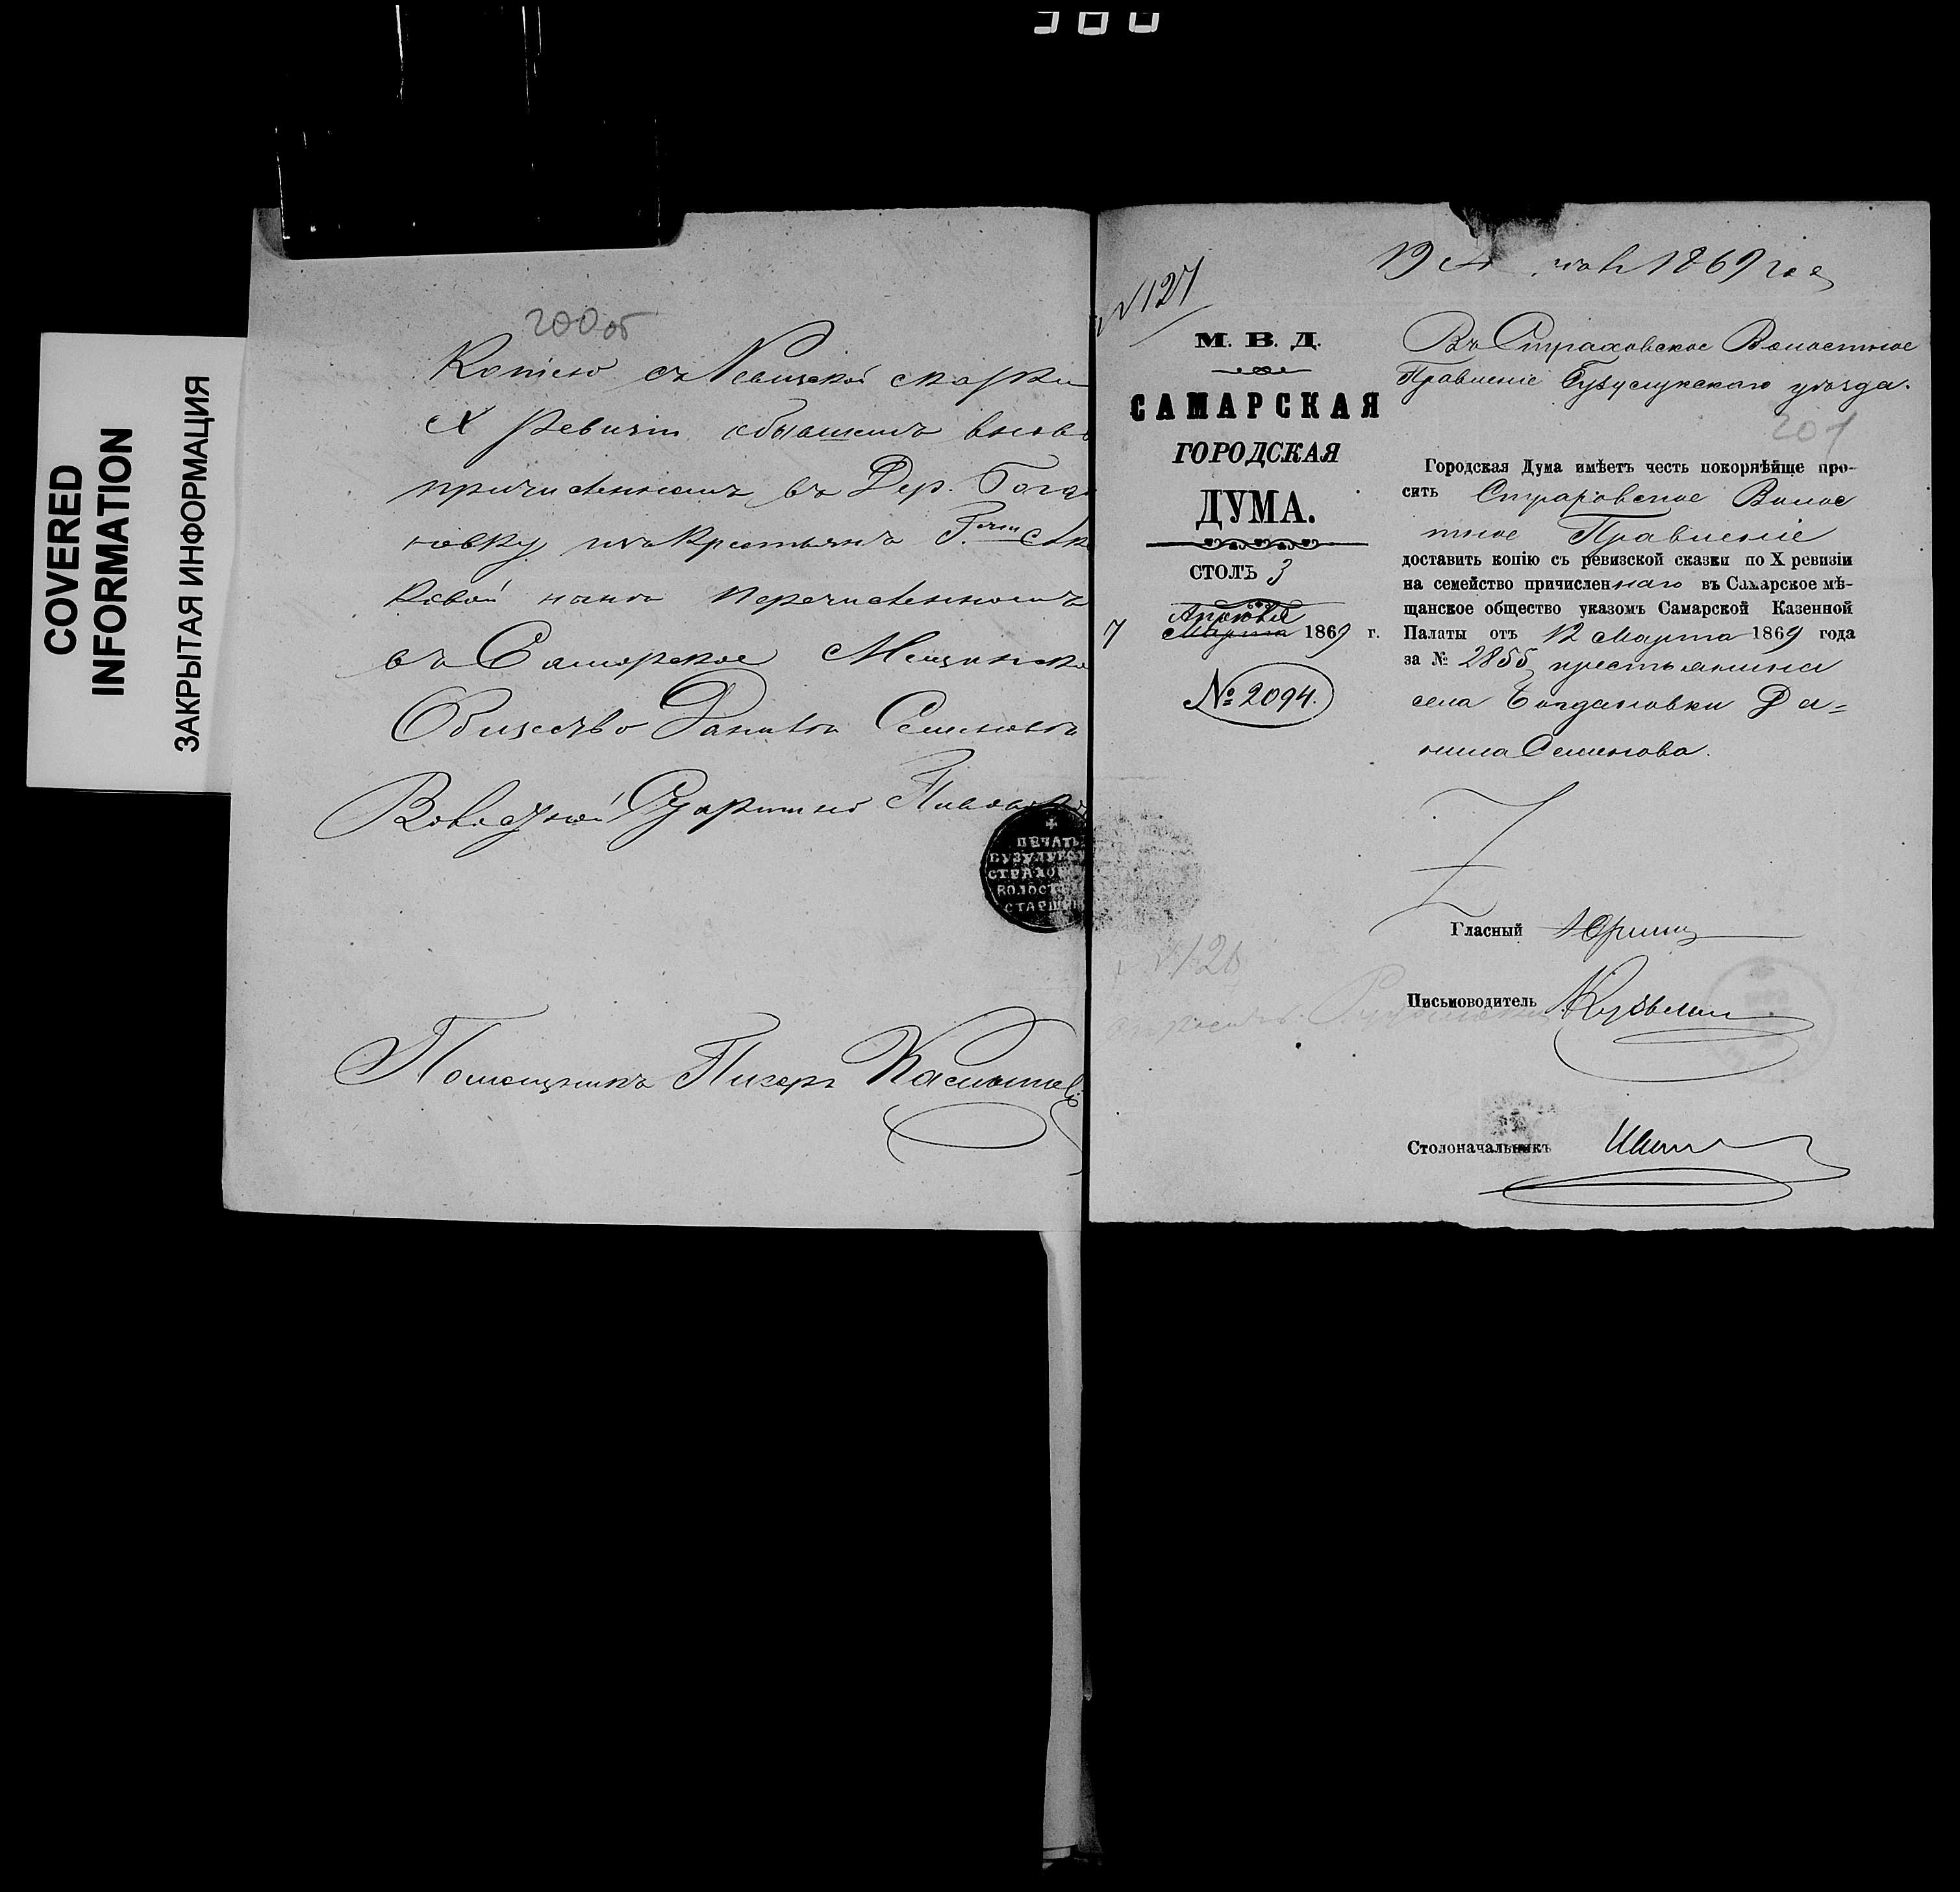 COVERED
INFORMATION
ЗАКРЫТАЯ ИНФОРМАЦИЯ
200 об
Копiею съ Ревизской сказки
X ревизiи объ
причисленномъ въ Дер. Богда
новку изъ крестьянъ
нынѣ перечисленномъ
въ Самарское Мещанско
Общество Данилѣ Семеновѣ
Волостной Старшина
ПЕЧАТЬ
БУЗУЛУКСК
СТРАХО
ВОЛОСТ
СТАРШИН
Помощникъ Писаря
№ 127
19 1869 года
М. В. Д.
САМАРСКАЯ
ГОРОДСКАЯ
ДУМА.
СТОЛЪ 3
7 Апрѣля Марта 1869 г.
№ 2094.
Въ Страховское Волостное
Правленiе Бузулукскаго уѣзда.
201
Городская Дума имѣетъ честь покорнѣйше про-
сить Страховское Волос
тное Правленiе
доставить копiю съ ревизской сказки по X ревизiи
на семейство причисленнаго въ Самарское мѣ-
щанское общество указомъ Самарской Казенной
Палаты отъ 12 Марта 1869 года
за № 2855 крестьянина
села Богдановки Да=
нила Семенова.
Гласный
№ 128
Письмоводитель
Столоначальникъ